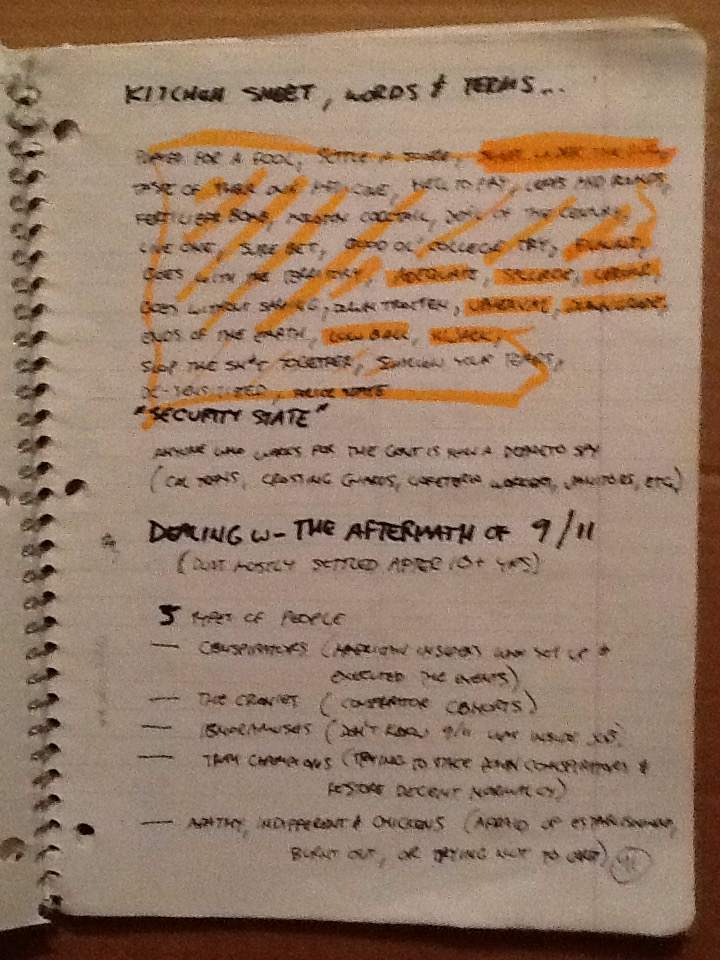 KITCHEN SHEET, WORDS & TERMS...
PLAYED FOR A FOOL, SETTLE A SCORE,
TASTE OF THEIR OWN MEDICINE, HELL TO PAY, LEAPS AND BOUNDS,
FERTILIZER BOMB, MOLOTOV COCKTAIL, DEAL OF THE CENTURY,
LIVE ONE, SURE BET, GOOD OL' COLLEGE TRY,
GOES WITH THE TERRITORY, ADEQUATE,
GOES WITHOUT SAYING, DOWN TRODDEN, DOWNGRADE,
ENDS OF THE EARTH, LOW BALL, HIJACK,
SLAP THE SH*T TOGETHER, YOUR
DE-SENSITIZED, POLICE STATE
"SECURITY STATE"
ANYONE WHO WORKS FOR THE GOVT IS NOW A DEFACTO SPY
(CAL TRANS, CROSSING GUARDS, CAFETERIA WORKERS, JANITORS, ETC)
DEALING W- THE AFTERMATH OF 9/11
(DUST MOSTLY SETTLED AFTER 10+ YRS)
5 TYPES OF PEOPLE
— CONSPIRATORS (AMERICAN INSIDERS WHO SET UP &
EXECUTED THE EVENTS)
— THE CRONIES (CONSPIRATOR COHORTS)
— IGNORAMUSES (DON'T KNOW 9/11 WAS INSIDE JOB)
— TRUTH CHAMPIONS (TRYING TO TAKE DOWN CONSPIRATORS &
RESTORE DECENT NORMALCY)
— APATHY, INDIFFERENT & CHICKENS (AFRAID OF ESTABLISHMENT,
BURNT OUT, OR TRYING NOT TO CARE)